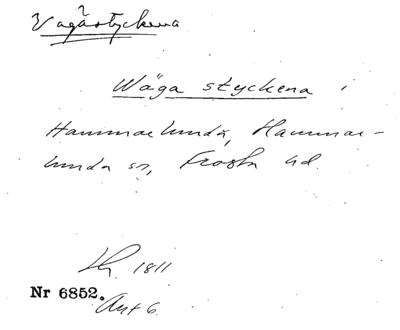 Vagåstyckena
Wåga styckena i
Hammarlunda, Hammar-
lunda sn, Frosta hd.
1811
Nr 6852.
Akt 6